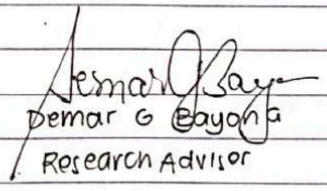 Demar G Bayona
Research Advisor